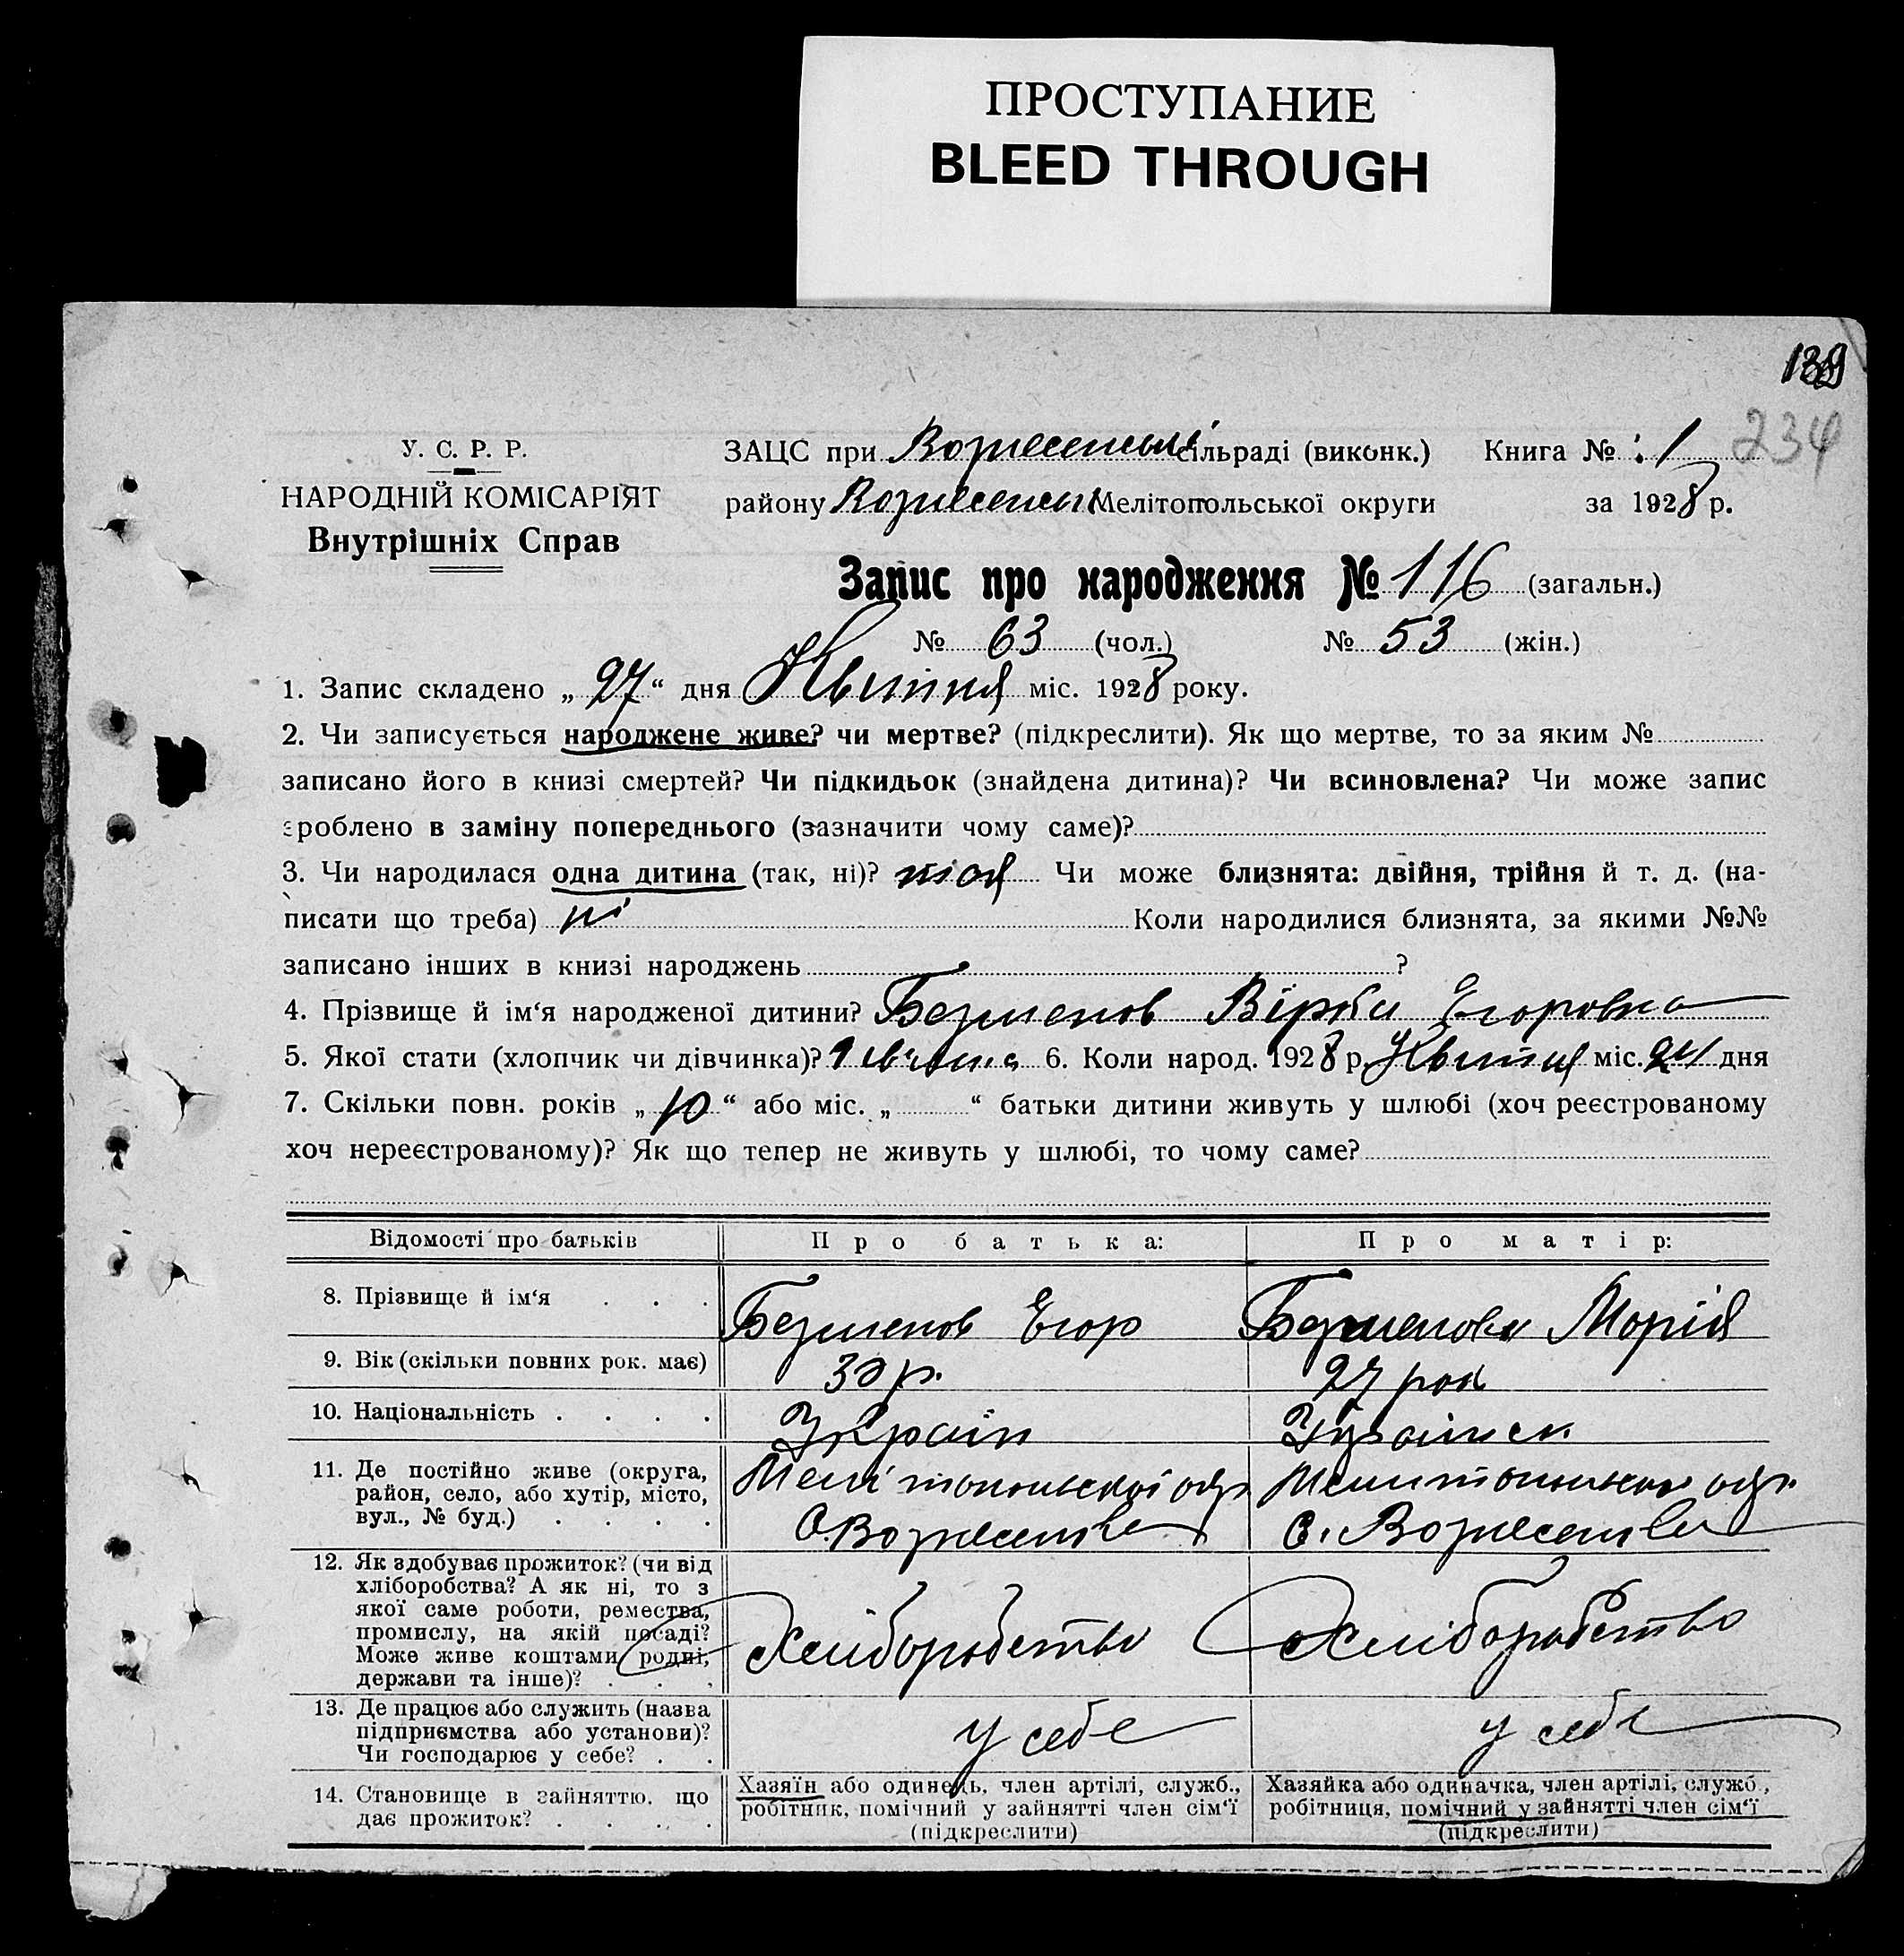 ПРОСТУПАНИЕ
BLEED THROUGH
139
234
У. С. Р. Р.
НАРОДНІЙ КОМІСАРІЯТ
Внутрішніх Справ
ЗАЦС при Вознесенські сільраді (виконк.) Книга № 1
району Вознесенськ Мелітопольської округи за 1928 р.
Запис про народження № 116 (загальн.)
№ 63 (чол.) № 53 (жін.)
1. Запис складено „ 27 “ дня Квітня міс. 1928 року.
2. Чи записується народжене живе? чи мертве? (підкреслити). Як що мертве, то за яким №
записано його в книзі смертей? Чи підкидьок (знайдена дитина)? Чи всиновлена? Чи може запис
зроблено в заміну попереднього (зазначити чому саме)?
3. Чи народилася одна дитина (так, ні)? так Чи може близнята: двійня, трійня й т. д. (на-
писати що треба) ні Коли народилися близнята, за якими №№
записано інших в книзі народжень ?
4. Прізвище й ім‘я народженої дитини? Безменов Віра Егоровна
5. Якої стати (хлопчик чи дівчинка)? дівчина 6. Коли народ. 1928 р. Квітня міс. 24 дня
7. Скільки повн. років „ 10 “ або міс. „ “ батьки дитини живуть у шлюбі (хоч реєстрованому
хоч нереєстрованому)? Як що тепер не живуть у шлюбі, то чому саме?
Відомості про батьків Про батька: Про матір:
8. Прізвище й ім‘я Безменов Егор Безменова Марія
9. Вік (скільки повних рок. має) 30 р. 27 рок
10. Національність Україн Українск
11. Де постійно живе (округа, район, село, або хутір, місто, вул., № буд.) Мелітопольської окр. Мелитопольскої окр.
с. Вознесенка с. Вознесенка
12. Як здобуває прожиток? (чи від
хліборобства? А як ні, то з
якої саме роботи, ремества,
промислу, на якій посаді?
Може живе коштами родні,
держави та інше)?
Хліборобство Хліборобство
13. Де працює або служить (назва
підприємства або установи)?
Чи господарює у себе?
у себе у себе
14. Становище в зайняттю, що
дає прожиток?
Хазяїн або одинець, член артілі, служб.,
робітник, помічний у зайнятті член сім‘ї
(підкреслити)
Хазяйка або одиначка, член артілі, служб.,
робітниця, помічний у зайнятті член сім‘ї
(підкреслити)